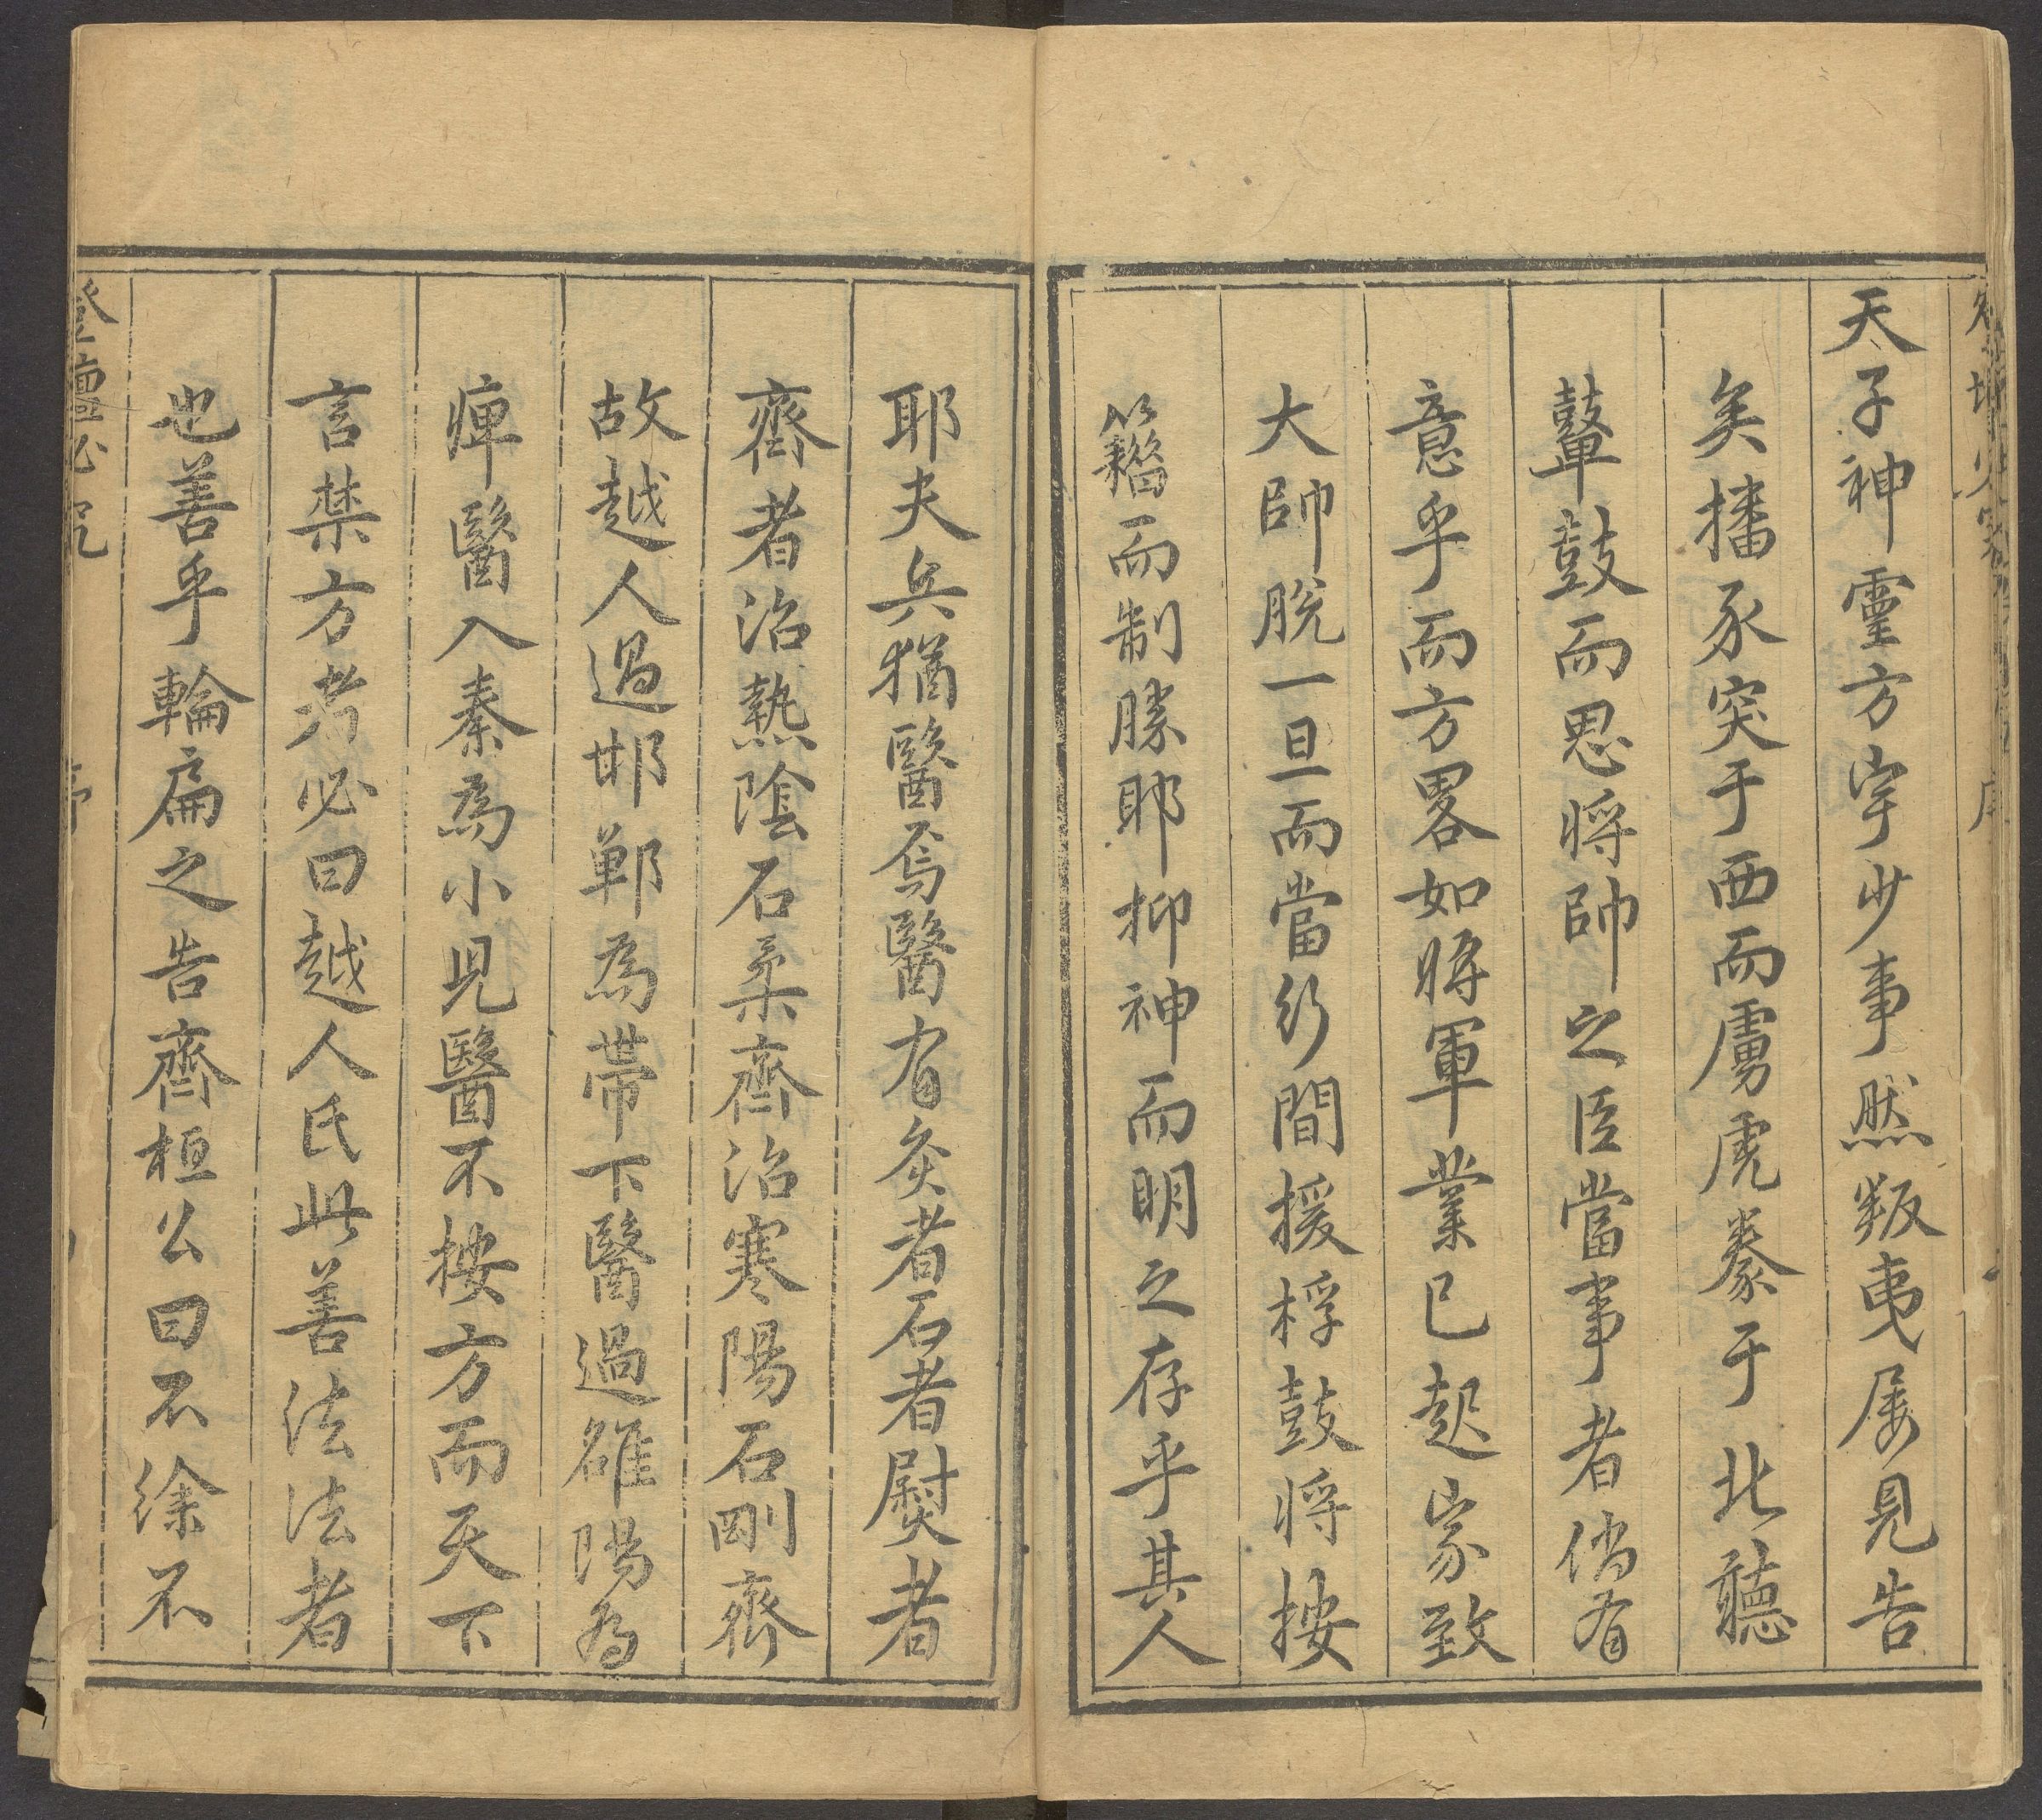 天子神靈方宇少事然叛夷屡見告
矣播豕突于西而虜虎豢于北聽
鼙鼓而思將帥之臣當事者倘有
意乎而方畧如將軍業已起家致
大帥脱一旦而當行間援桴鼓將按
籍而制勝耶抑神而明之存乎其人
耶夫兵猶醫焉醫有灸者石者熨者
齊者治熱陰石柔齊治寒陽石剛齊
故越人過邯鄲為帶下醫過雒陽為
痺醫入秦為小兒醫不按方而天下
言禁方者必曰越人氏此善法法者
也善乎輪扁之告齊桓公曰不徐不
登壇必究
序